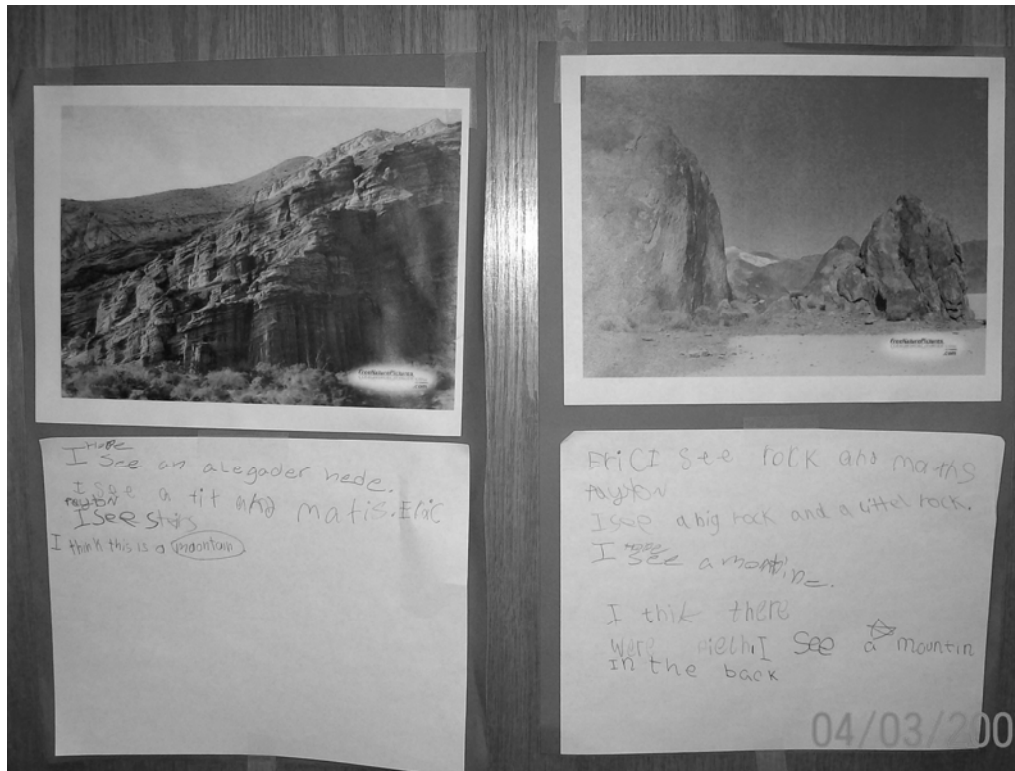 FreeNaturePictures
.com
Hope
I see an alegader hede.
I see a tit and matis. Eric
Payton
I see stairs
I think this is a mountain.
FreeNaturePictures
.com
Eric I see rock and maths
Payton
I see a big rock and a littel rock.
Hope
I see a montine.
I thik there
were I see a mountin
in the back
04/03/200